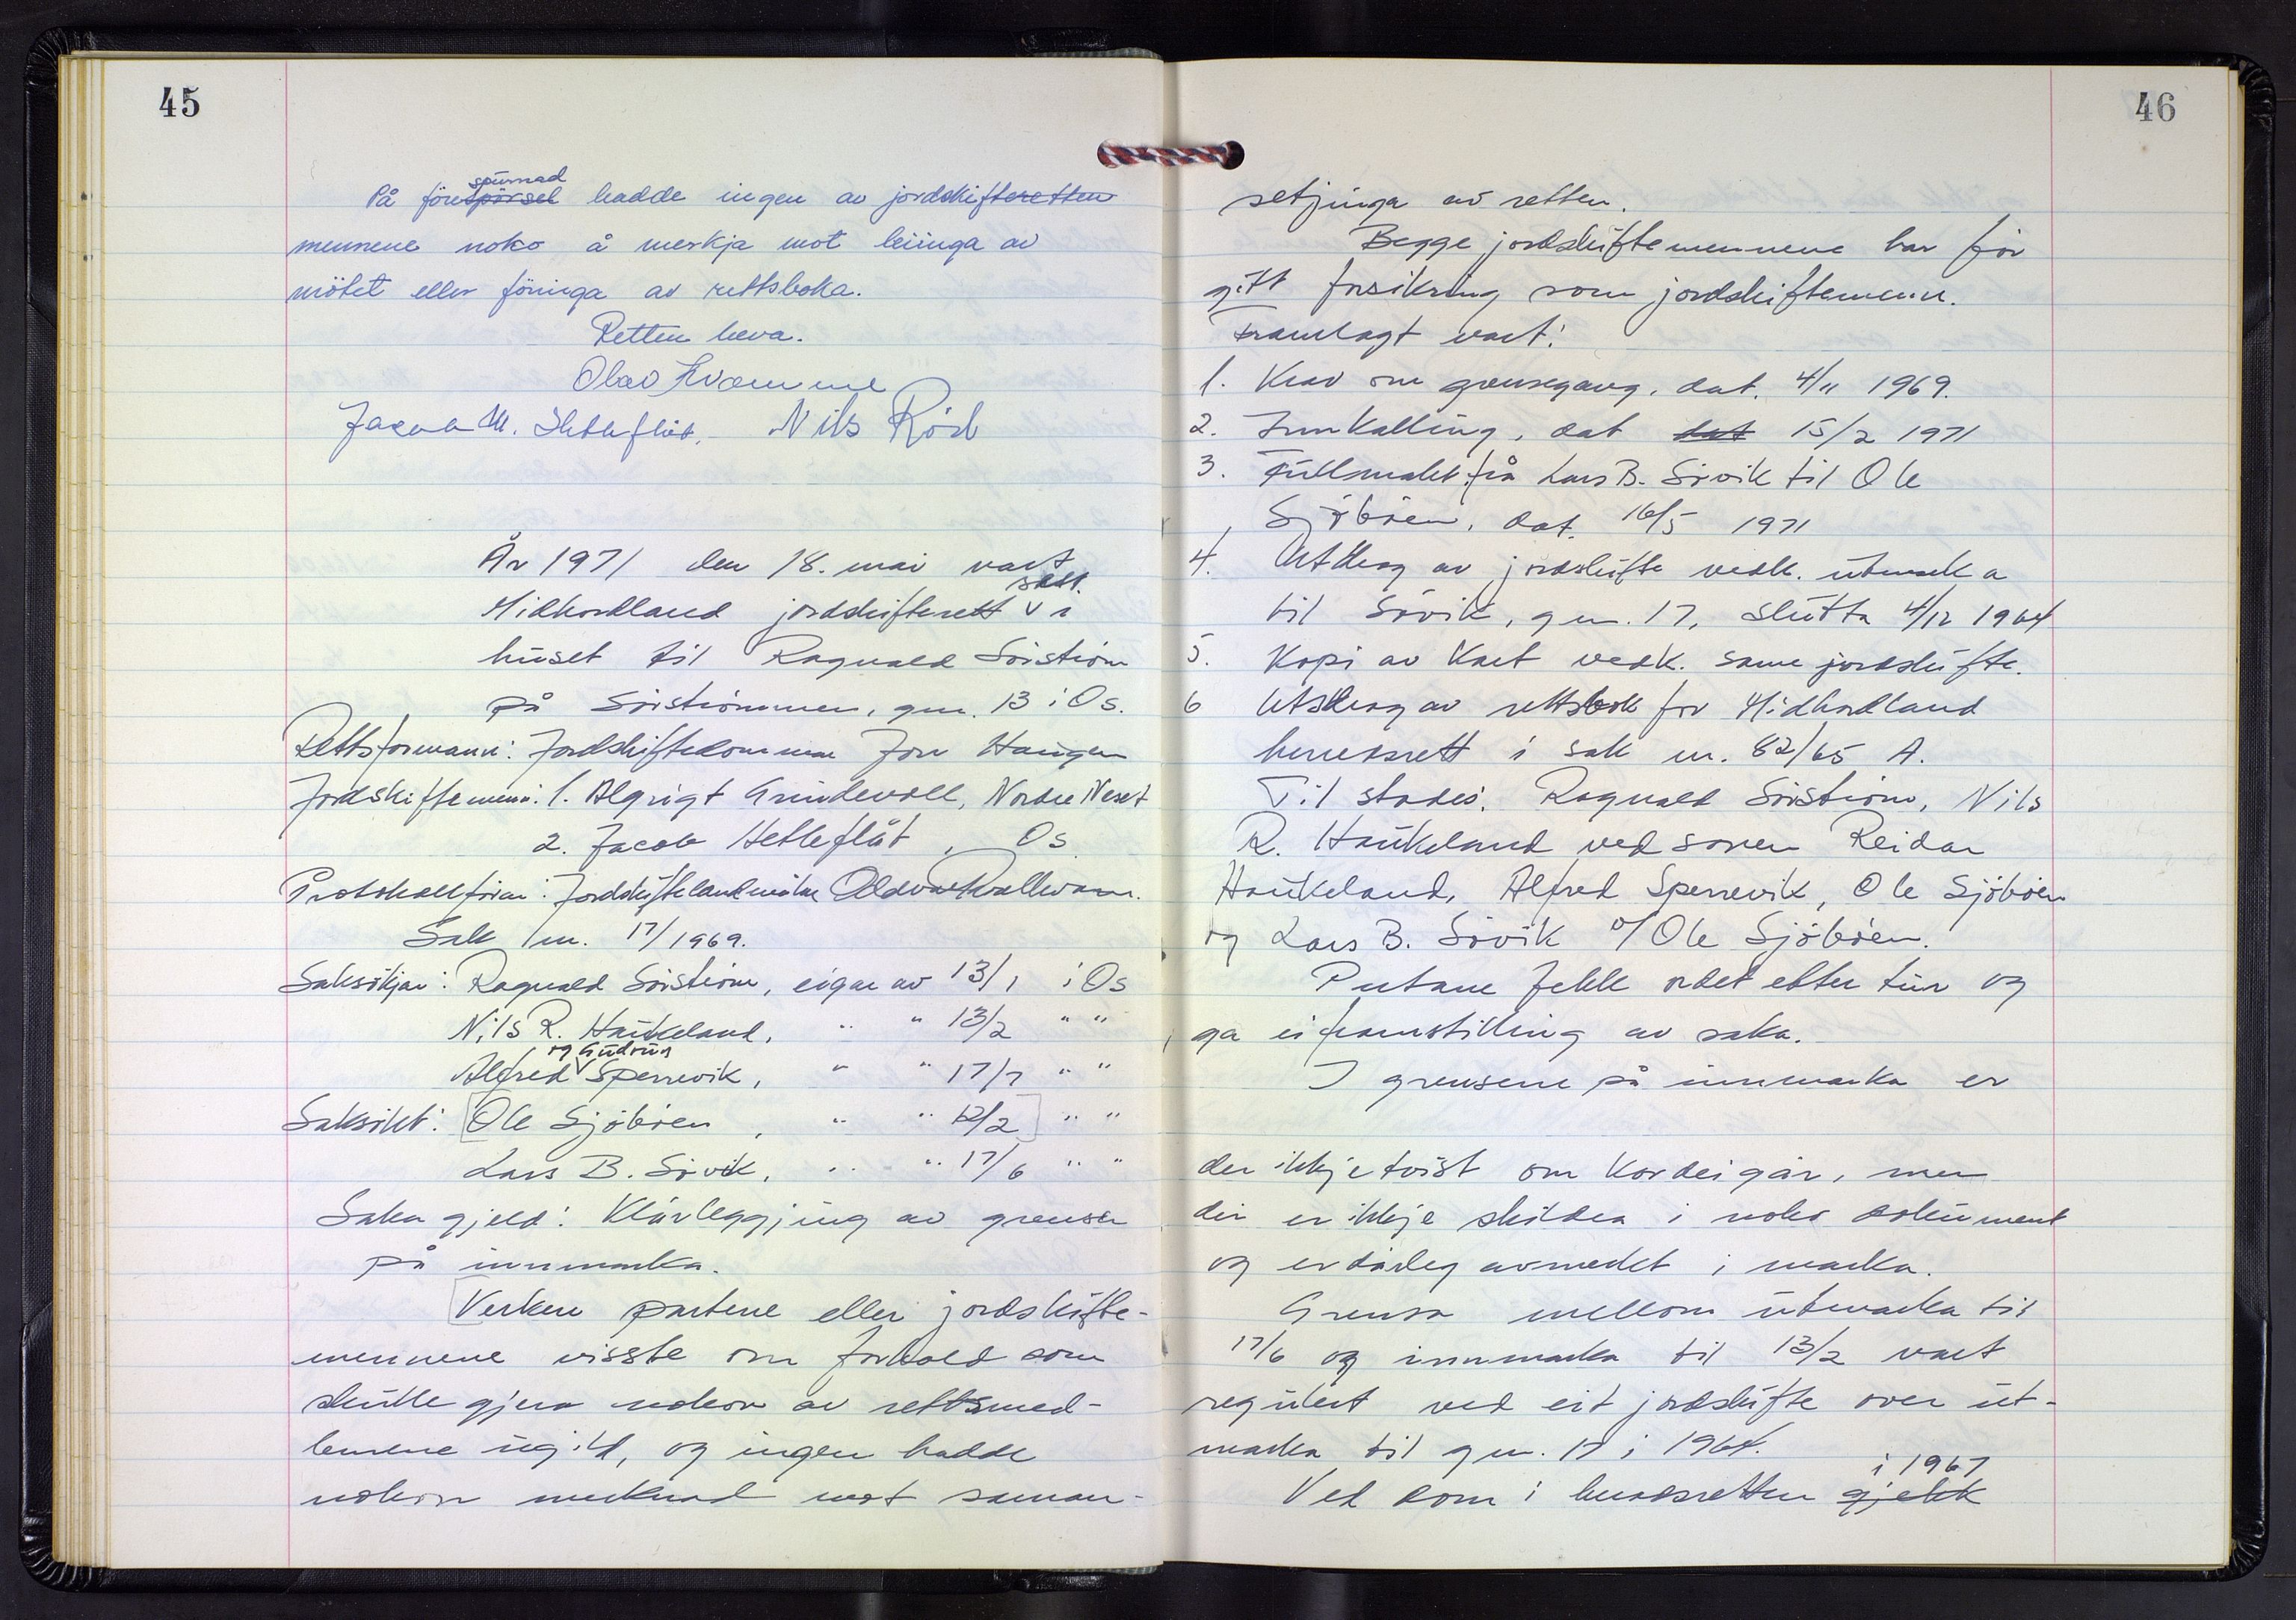 45
På förespörsel spurnad hadde ingen av jordskifteretten
mennene noko å merkja mot leiinga av
mötet eller föringa av rettsboka.
Retten heva.
Olav Kvamme
Jacob M. Hetleflåt. Nils Röd
År 1971 den 18. mai vart
Midhordland jordskifterett sett i
huset til Ragnvald Söiström
på Söiströmmen, gnr. 13 i Os.
Rettsformann: Jordskiftedommar Jon Haugen
Jordskiftemenn: 1. Algrigt Grindevoll, Nordre Neset
2. Jacob Hetleflåt, Os
Protokollförar: Jordskiftelandmålar
Sak nr. 17/1969.
Saksökjar: Ragnvald Söiström, eigar av 13/1 i Os
Nils R. Haukeland, " " 13/2 " "
Alfred og Gudrun Sperrevik, " " 17/7 " "
Saksökt: [Ole Sjöböen, " " 12/2] " "
Lars B. Sövik, " " 17/6 " "
Saka gjeld: Klårleggjing av grenser
på innmarka.
[Verken partene eller jordskifte-
mennene visste om forhold som
skulle gjera nokon av rettsmed-
lemene ugild, og ingen hadde
nokon merknad mot saman-
46
setjinga av retten.
Begge jordskiftemennene har för
gitt forsikring som jordskiftemenn.
Framlagt vart:
1. Krav om grensegang, dat. 4/11 1969.
2. Innkalling, dat dat 15/2 1971
3. Fullmakt frå Lars B. Sövik til Ole
Sjöböen, dat. 16/5 1971
4. Utdrag av jordskifte vedk. utmarka
til Sövik, gnr. 17, slutta 4/12 1964
5. Kopi av kart vedk. same jordskifte.
6 Utskrag av rettsbok for Midhordland
herredsrett i sak nr. 82/65 A.
Til stades: Ragnvald Söiström, Nils
R. Haukeland ved sonen Reidar
Haukeland, Alfred Sperrevik, Ole Sjöböen
og Lars B. Sövik v/Ole Sjöböen.
Partane fekk ordet etter tur og
ga ei framstilling av saka.
I grensene på innmarka er
der ikkje tvist om kor dei går, men
dei er ikkje skildra i noko dokument
og er dårleg avmerket i marka.
Grensa mellom utmarka til
17/6 og innmarka til 13/2 vart
regulert ved eit jordskifte over ut-
marka til gnr. 17 i 1964.
Ved dom i herredsretten gjekk i 1967